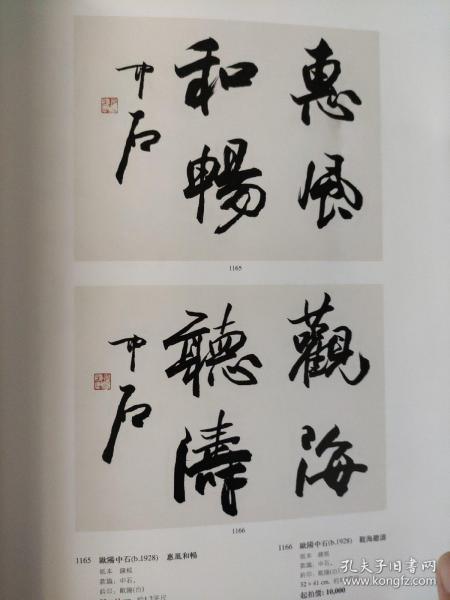 惠風
和暢
中石
1165
觀海
聽濤
中石
1166
1165 歐陽中石(b.1928) 惠風和暢
紙本 鏡框
款識：中石。
鈐印：歐陽(白)
1166 歐陽中石(b.1928) 觀海聽濤
紙本 鏡框
款識：中石。
鈐印：歐陽(白)
32 × 41 cm.
起拍價: 10,000
孔夫子旧书网